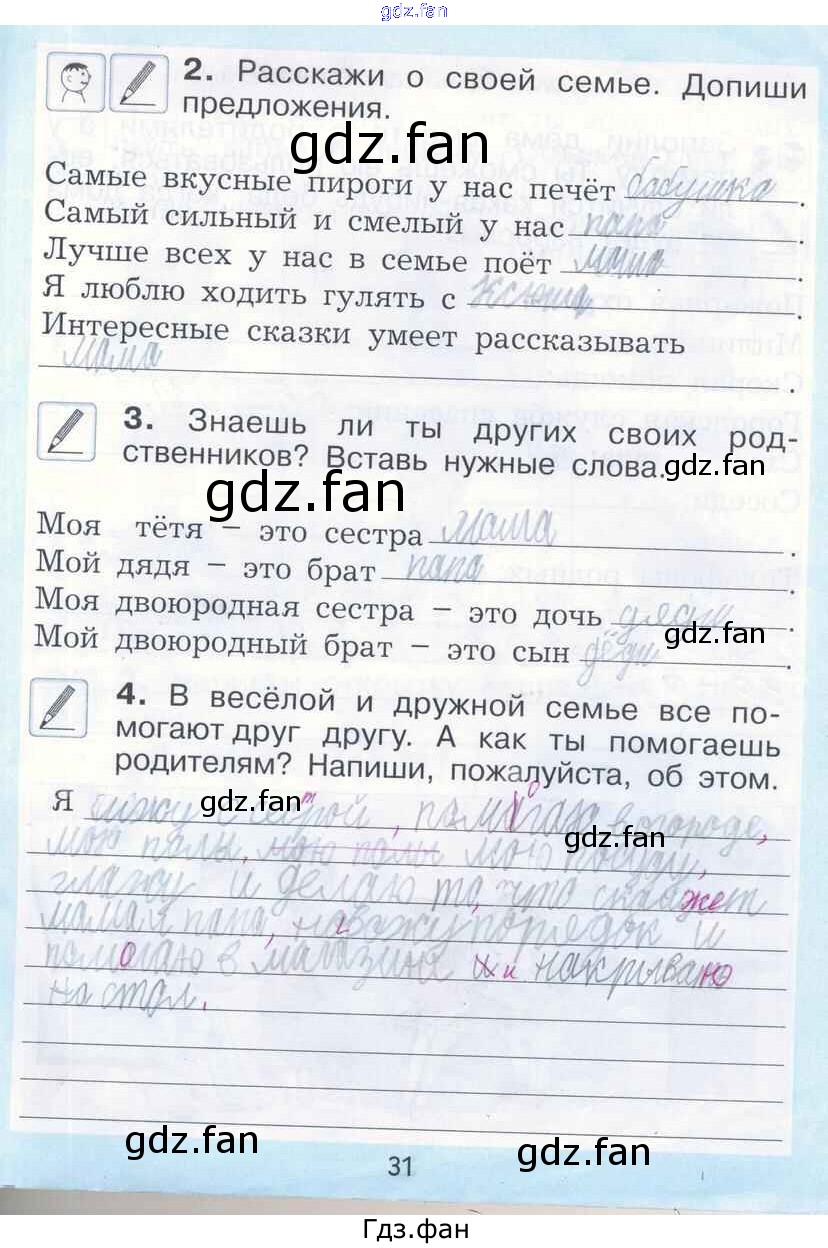 gdz.fan
2. Расскажи о своей семье. Допиши
предложения.
gdz.fan
Самые вкусные пироги у нас печёт бабушка.
Самый сильный и смелый у нас папа.
Лучше всех у нас в семье поёт мама.
Я люблю ходить гулять с Ксюша.
Интересные сказки умеет рассказывать
мама.
3. Знаешь ли ты других своих род-
ственников? Вставь нужные слова.
gdz.fan
gdz.fan
Моя тётя – это сестра мама.
Мой дядя – это брат папа.
Моя двоюродная сестра – это дочь дяди.
gdz.fan
Мой двоюродный брат – это сын дяди.
4. В весёлой и дружной семье все по-
могают друг другу. А как ты помогаешь
родителям? Напиши, пожалуйста, об этом.
Я сижу с сестрой, помогаю в огороде,
gdz.fan
gdz.fan
мою полы, мою полы мою посуду,
глажу и делаю то, что скажет
мама и папа, навожу порядок и
помогаю в магазине и накрываю
на стол.
gdz.fan
gdz.fan
gdz.fan
31
Гдз.фан